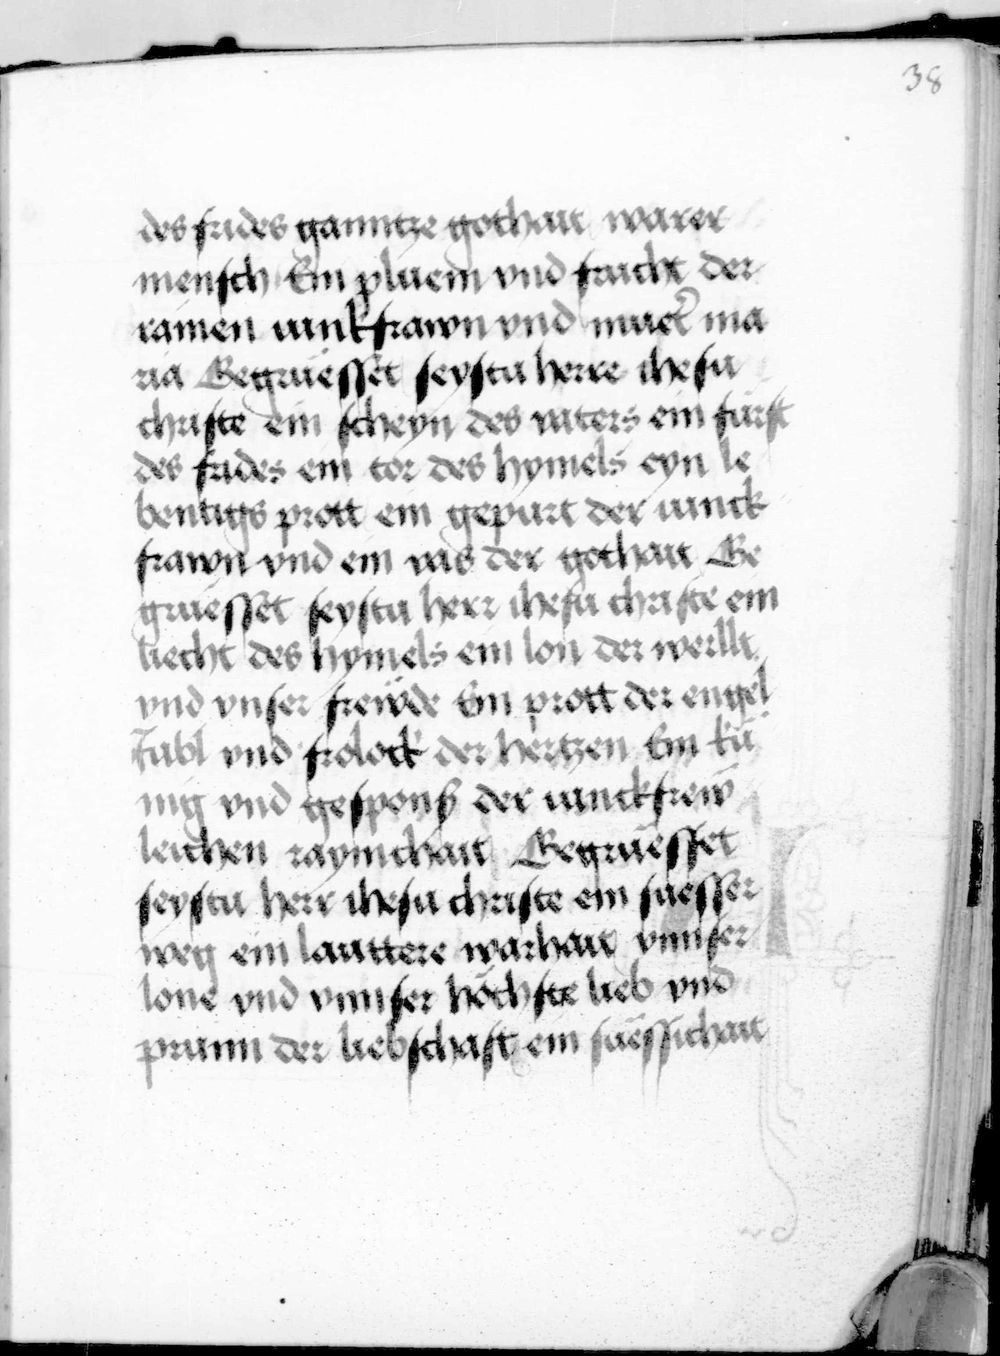 38
des frides ganntze gothait warer
mensch Ein pluem vnd frucht der
rainen iunkfrawn vnd muet̉ ma
ria Begrüesset seystu herre ihesu
christe ein scheyn des vaters ein fürst
des frides ein tor des hymels eyn le
bentigs prott ein gepurt der iunck
frawn vnd ein vas der gothait Be
gruesset seystu herr ihesu christe ein
liecht des hymels ein lon der werllt
vnd vnser freẅde Ein prott der engel
Jubl vnd frolock der hertzen Ein kü
nig vnd gesponß der iunckfreẅ
leichen raynichait Begrüesset
seystu herr ihesu christe ein suesser
weg ein lauttere warhait vnnser
lone vnd vnnser höchste lieb vnd
prunn der liebschaft ein süessichait